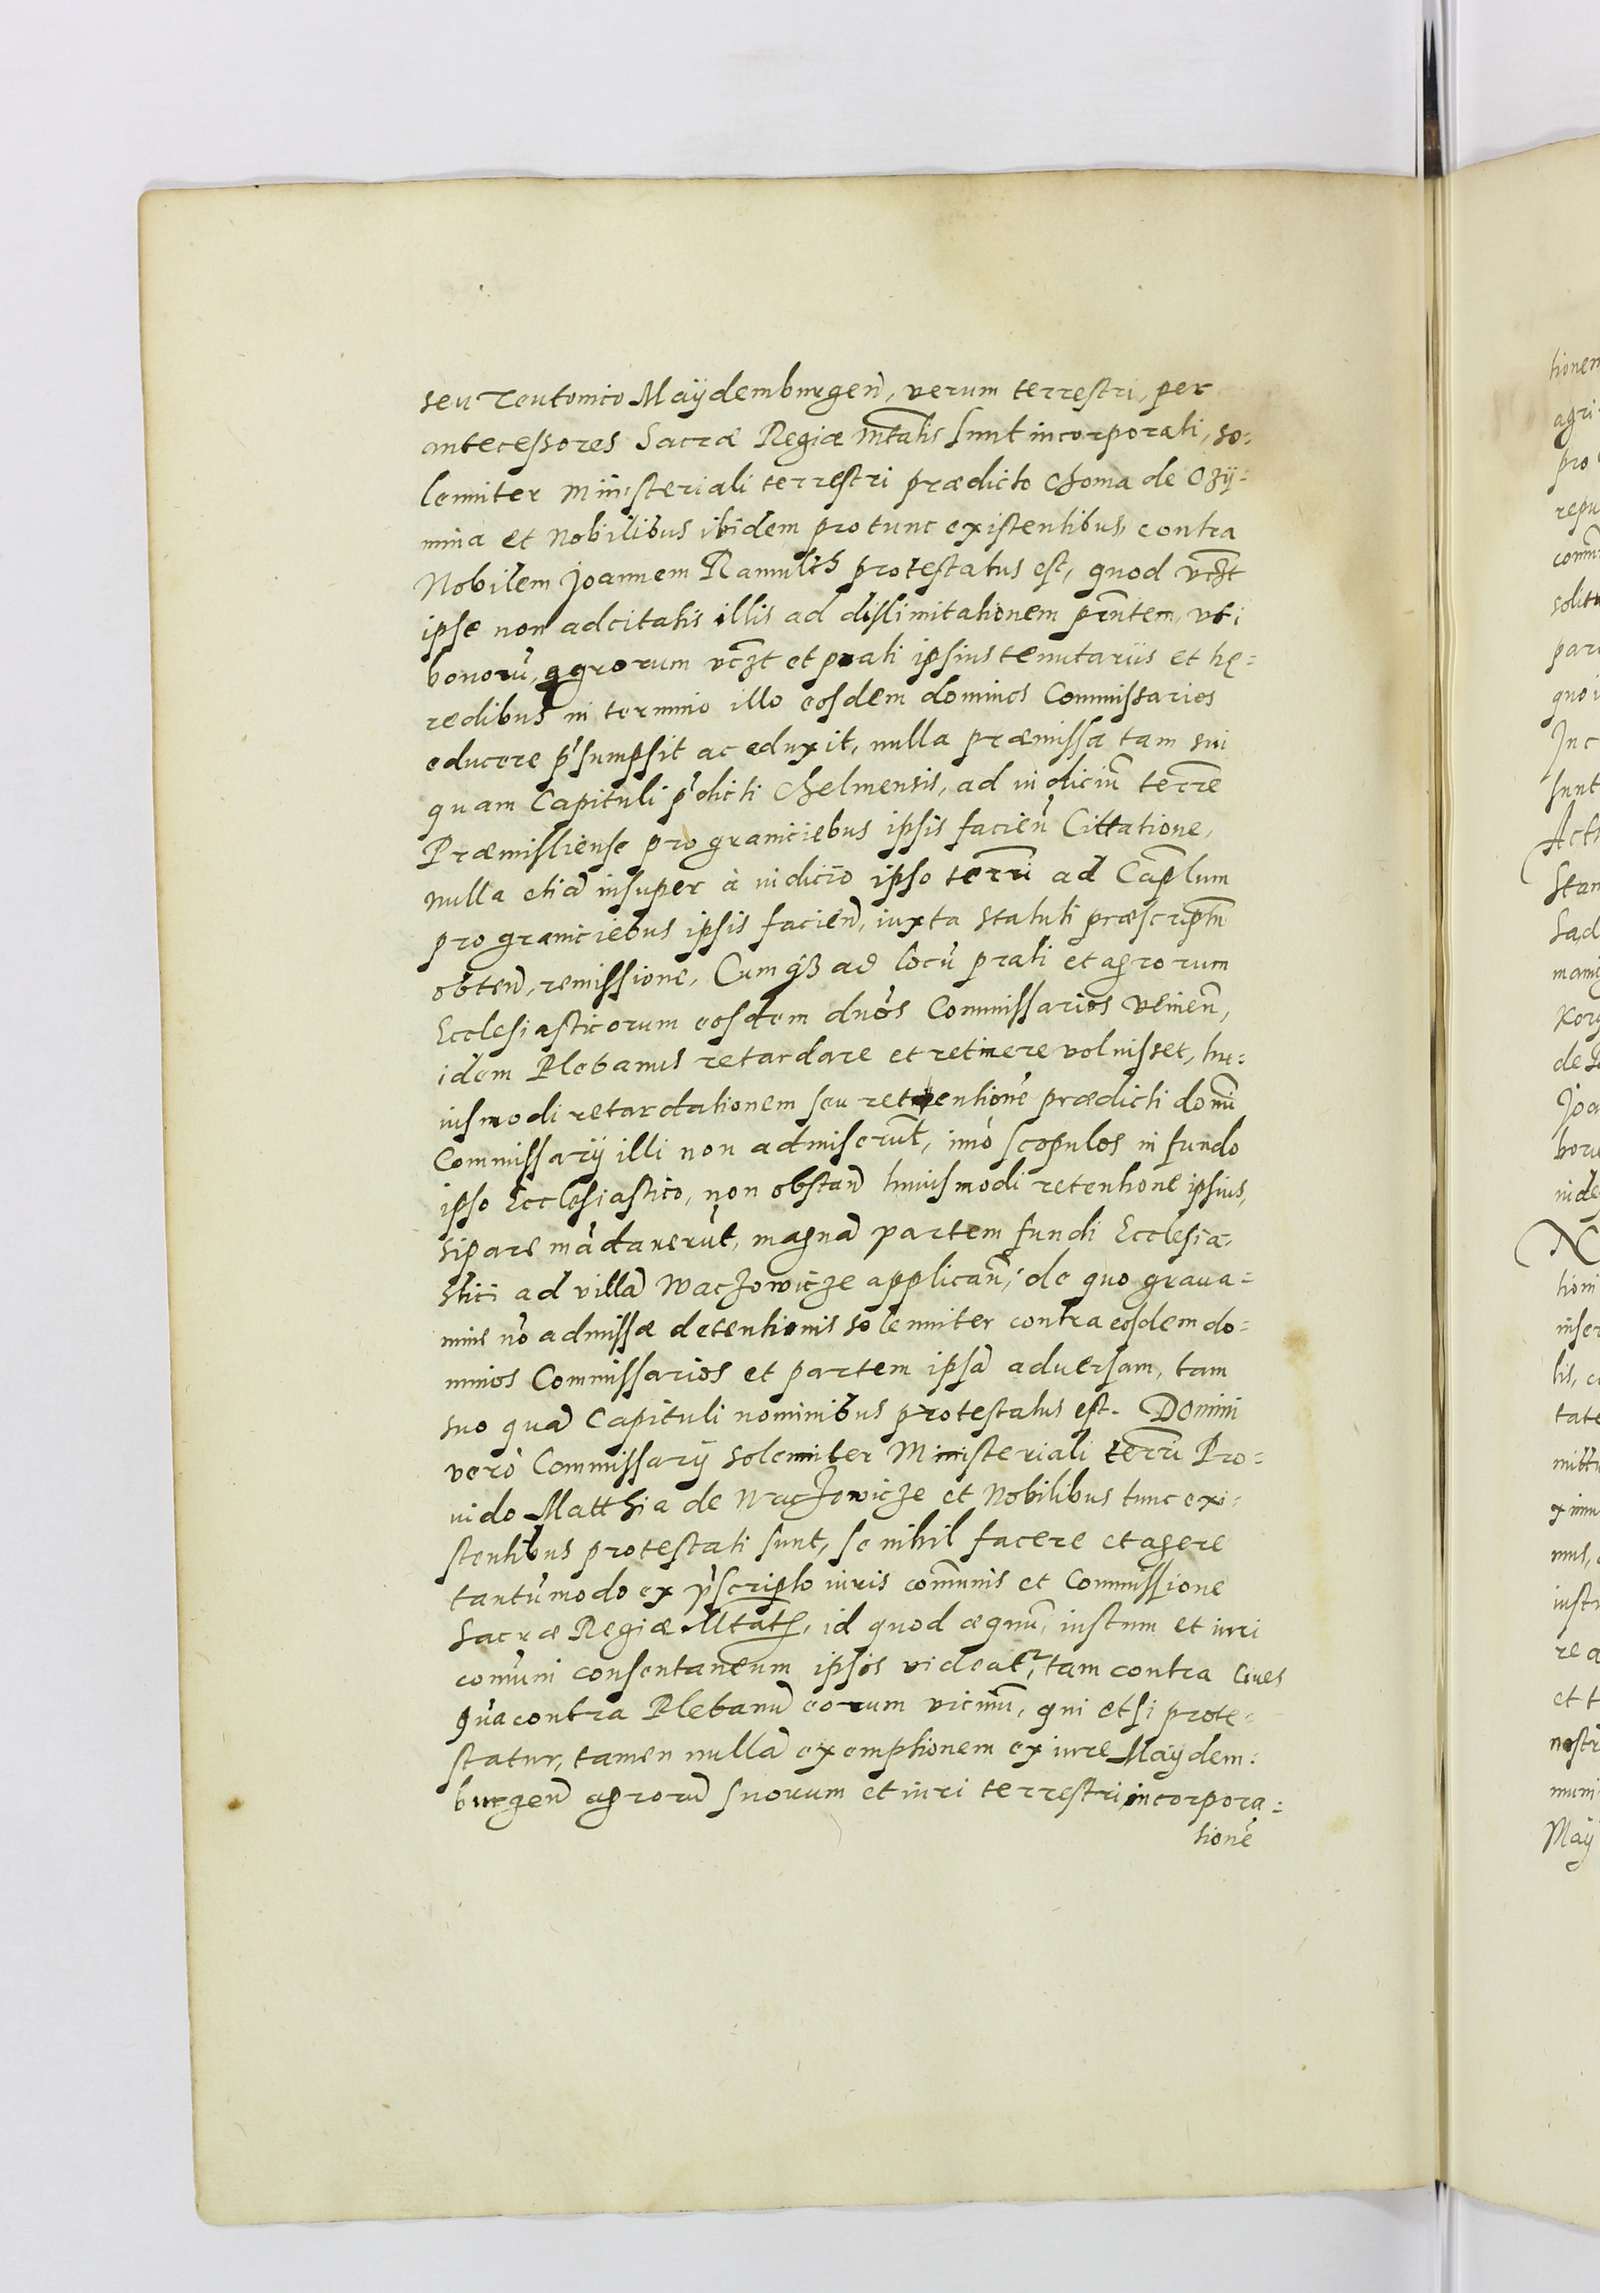 seu Teutonico Maÿdemburgen̄, verum terrestri, per
antecessores Sacræ Regiæ mt̄atis sunt incorporati, so:
lenniter ministeriali terrestri prædicto Choma de Ozÿ:
mina et Nobilibus ibidem pro tunc existentibus contra
Nobilem Joannem Ramulth protestatus est, quod vcꝫt
ipse non adcitatis illis ad dislimitationem pn̄tem, vti
bonorū, agrorum vcꝫt et prati ipsius tenutariis et hę=
redibus in termino illo eosdem dominos Commissarios
educere p̄sumpsit ac eduxit, nulla præmissa tam sui
quam Capituli p̄dicti Chelmensis, ad iudiciū terr̄e
Præmisliense pro graniciebus ipsis facien̄ Cittatione,
nulla etiā insuper à iudicio ipso terr̄i ad Cap̄lum
pro graniciebus ipsis facien̄, iuxta statuti præscriptū
obten̄, remissione, Cumqꝫ ad locū prati et agrorum
Ecclesiasticorum eosdem dn̄os Commissarios venien̄,
idem Plebanus retardare et retinere voluisset, hu:
iusmodi retardationem seu retentionē prædicti domī
Commissarÿ illi non admiserūt, imò scopulos in fundo
ipso Ecclesiastico, non obstan̄ huiusmodi retentione ipsius,
sipare mādauerūt, magnā partem fundi Ecclesia,
stici ad villā Waczowicze applican̄; de quo graua=
mine nō admissæ detentionis solenniter contra eosdem do=
minos Commissarios et partem ipsā aduersam, tam
suo quā Capituli nominibus protestatus est. Domini
verò Commissarÿ solenniter Ministeriali terr̄i Pro=
uido Matthia de Waczowicze et Nobilibus tunc exi=
stentibus protestati sunt, se nihil facere et agere
tantūmodo ex p̄scripto iuris com̄unis et Commissione
Sacræ Regiæ Mtatis, id quod æquū, iustum et iuri
com̄uni consentaneum ipsis videatr, tam contra Ciues
quā contra Plebanū eorum vicinū, qui etsi prote=
statur, tamen nullā exemptionem ex iure Maÿdem:
burgen̄ agrorū suorum et iuri terrestri incorpora=
tionē